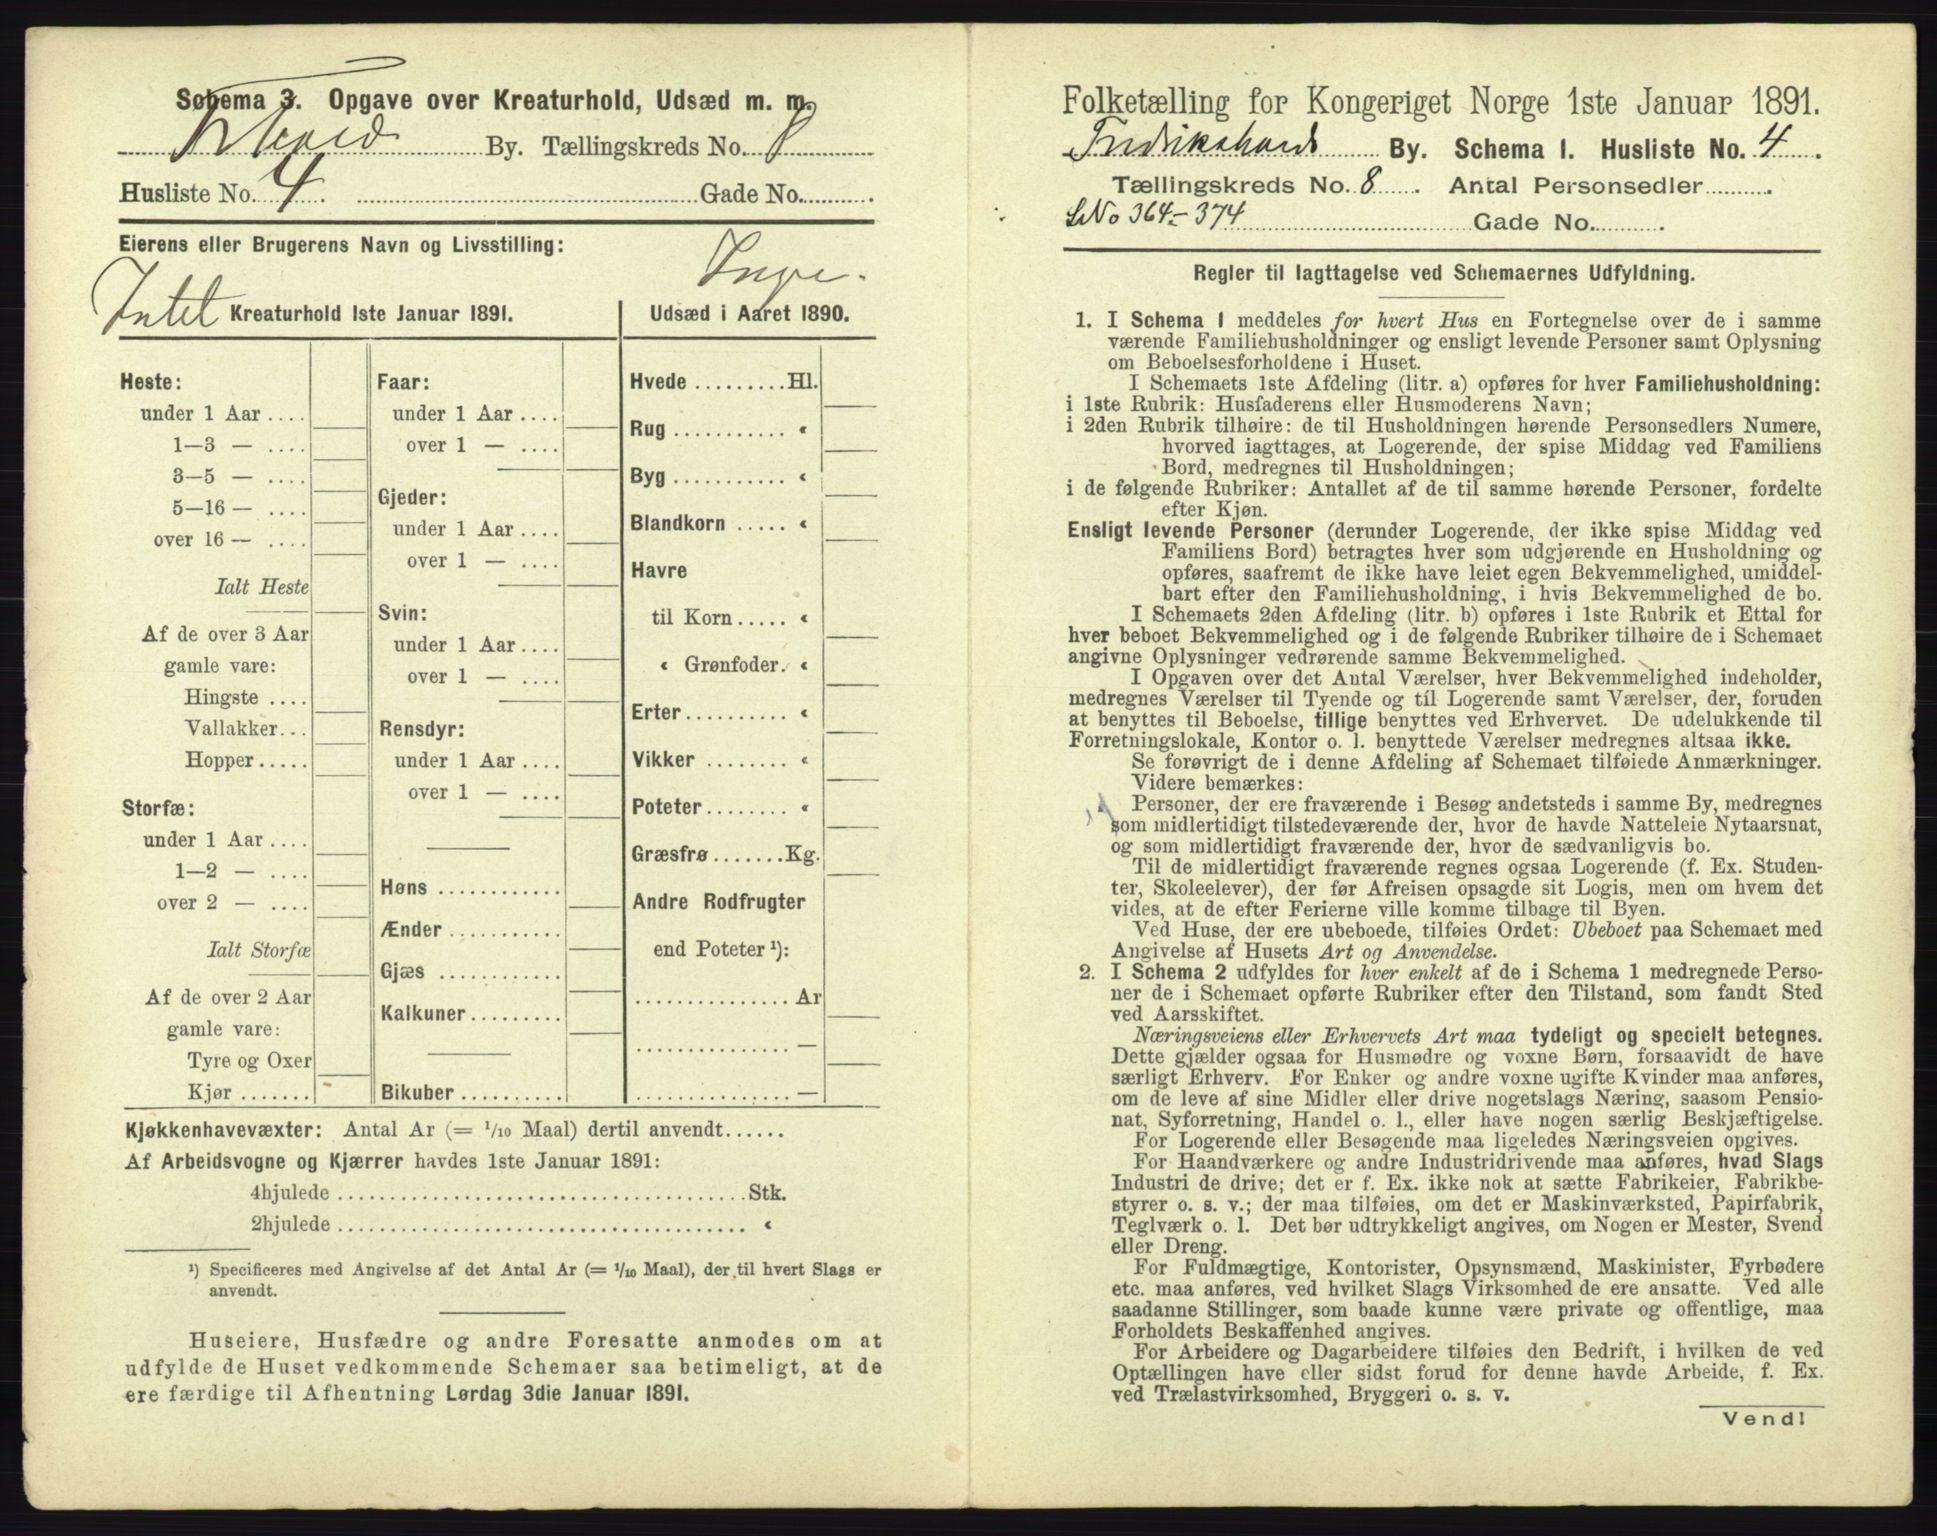 Schema 3. Opgave over Kreaturhold, Udsæd m. m.
By. Tællingskreds No. 8
Husliste No. 4. Gade No. .
Eierens eller Brugerens Navn og Livsstilling:
Intet Kreaturhold 1ste Januar 1891.
Heste:
under 1 Aar ....
1—3 — ....
3—5 — ....
5—16 — ....
over 16 — ....
Ialt Heste
Af de over 3 Aar
gamle vare:
Hingste ....
Vallakker...
Hopper.....
Storfæ:
under 1 Aar ....
1—2 — ....
over 2 — ....
Ialt Storfæ
Af de over 2 Aar
gamle vare:
Tyre og Oxer
Kjør .......
Faar:
under 1 Aar ....
over 1 — ....
Gjeder:
under 1 Aar ....
over 1 — ....
Svin:
under 1 Aar ....
over 1 — ....
Rensdyr:
under 1 Aar ....
over 1 — ....
Høns ............
Ænder ...........
Gjæs ............
Kalkuner.........
Bikuber ..........
Udsæd i Aaret 1890.
Hvede .........Hl.
Rug ........... «
Byg ........... «
Blandkorn ..... «
Havre
til Korn ..... «
« Grønfoder. «
Erter .......... «
Vikker ........ «
Poteter ........ «
Græsfrø .......Kg.
Andre Rodfrugter
end Poteter ¹):
............... Ar
............... —
............... —
Kjøkkenhavevæxter: Antal Ar (= 1/10 Maal) dertil anvendt......
Af Arbeidsvogne og Kjærrer havdes 1ste Januar 1891:
4hjulede ........................................Stk.
2hjulede ........................................ «
¹) Specificeres med Angivelse af det Antal Ar (= 1/10 Maal), der til hvert Slags er
anvendt.
Huseiere, Husfædre og andre Foresatte anmodes om at
udfylde de Huset vedkommende Schemaer saa betimeligt, at de
ere færdige til Afhentning Lørdag 3die Januar 1891.
Folketælling for Kongeriget Norge 1ste Januar 1891.
Fredrikshald By. Schema 1. Husliste No. 4.
Tællingskreds No. 8. Antal Personsedler .
LNo 364-374 Gade No. .
Regler til Iagttagelse ved Schemaernes Udfyldning.
1. I Schema 1 meddeles for hvert Hus en Fortegnelse over de i samme
værende Familiehusholdninger og ensligt levende Personer samt Oplysning
om Beboelsesforholdene i Huset.
I Schemaets 1ste Afdeling (litr. a) opføres for hver Familiehusholdning:
i 1ste Rubrik: Husfaderens eller Husmoderens Navn;
i 2den Rubrik tilhøire: de til Husholdningen hørende Personsedlers Numere,
hvorved iagttages, at Logerende, der spise Middag ved Familiens
Bord, medregnes til Husholdningen;
i de følgende Rubriker: Antallet af de til samme hørende Personer, fordelte
efter Kjøn.
Ensligt levende Personer (derunder Logerende, der ikke spise Middag ved
Familiens Bord) betragtes hver som udgjørende en Husholdning og
opføres, saafremt de ikke have leiet egen Bekvemmelighed, umiddel-
bart efter den Familiehusholdning, i hvis Bekvemmelighed de bo.
I Schemaets 2den Afdeling (litr. b) opføres i 1ste Rubrik et Ettal for
hver beboet Bekvemmelighed og i de følgende Rubriker tilhøire de i Schemaet
angivne Oplysninger vedrørende samme Bekvemmelighed.
I Opgaven over det Antal Værelser, hver Bekvemmelighed indeholder,
medregnes Værelser til Tyende og til Logerende samt Værelser, der, foruden
at benyttes til Beboelse, tillige benyttes ved Erhvervet. De udelukkende til
Forretningslokale, Kontor o. l. benyttede Værelser medregnes altsaa ikke.
Se forøvrigt de i denne Afdeling af Schemaet tilføiede Anmærkninger.
Videre bemærkes:
Personer, der ere fraværende i Besøg andetsteds i samme By, medregnes
som midlertidigt tilstedeværende der, hvor de havde Natteleie Nytaarsnat,
og som midlertidigt fraværende der, hvor de sædvanligvis bo.
Til de midlertidigt fraværende regnes ogsaa Logerende (f. Ex. Studen-
ter, Skoleelever), der før Afreisen opsagde sit Logis, men om hvem det
vides, at de efter Ferierne ville komme tilbage til Byen.
Ved Huse, der ere ubeboede, tilføies Ordet: Ubeboet paa Schemaet med
Angivelse af Husets Art og Anvendelse.
2. I Schema 2 udfyldes for hver enkelt af de i Schema 1 medregnede Perso-
ner de i Schemaet opførte Rubriker efter den Tilstand, som fandt Sted
ved Aarsskiftet.
Næringsveiens eller Erhvervets Art maa tydeligt og specielt betegnes.
Dette gjælder ogsaa for Husmødre og voxne Børn, forsaavidt de have
særligt Erhverv. For Enker og andre voxne ugifte Kvinder maa anføres,
om de leve af sine Midler eller drive nogetslags Næring, saasom Pensio-
nat, Syforretning, Handel o. l., eller have nogen særlig Beskjæftigelse.
For Logerende eller Besøgende maa ligeledes Næringsveien opgives.
For Haandværkere og andre Industridrivende maa anføres, hvad Slags
Industri de drive; det er f. Ex. ikke nok at sætte Fabrikeier, Fabrikbe-
styrer o. s. v.; der maa tilføies, om det er Maskinværksted, Papirfabrik,
Teglværk o. l. Det bør udtrykkeligt angives, om Nogen er Mester, Svend
eller Dreng.
For Fuldmægtige, Kontorister, Opsynsmænd, Maskinister, Fyrbødere
etc. maa anføres, ved hvilket Slags Virksomhed de ere ansatte. Ved alle
saadanne Stillinger, som baade kunne være private og offentlige, maa
Forholdets Beskaffenhed angives.
For Arbeidere og Dagarbeidere tilføies den Bedrift, i hvilken de ved
Optællingen have eller sidst forud for denne havde Arbeide, f. Ex.
ved Trælastvirksomhed, Bryggeri o. s. v.
Vend!